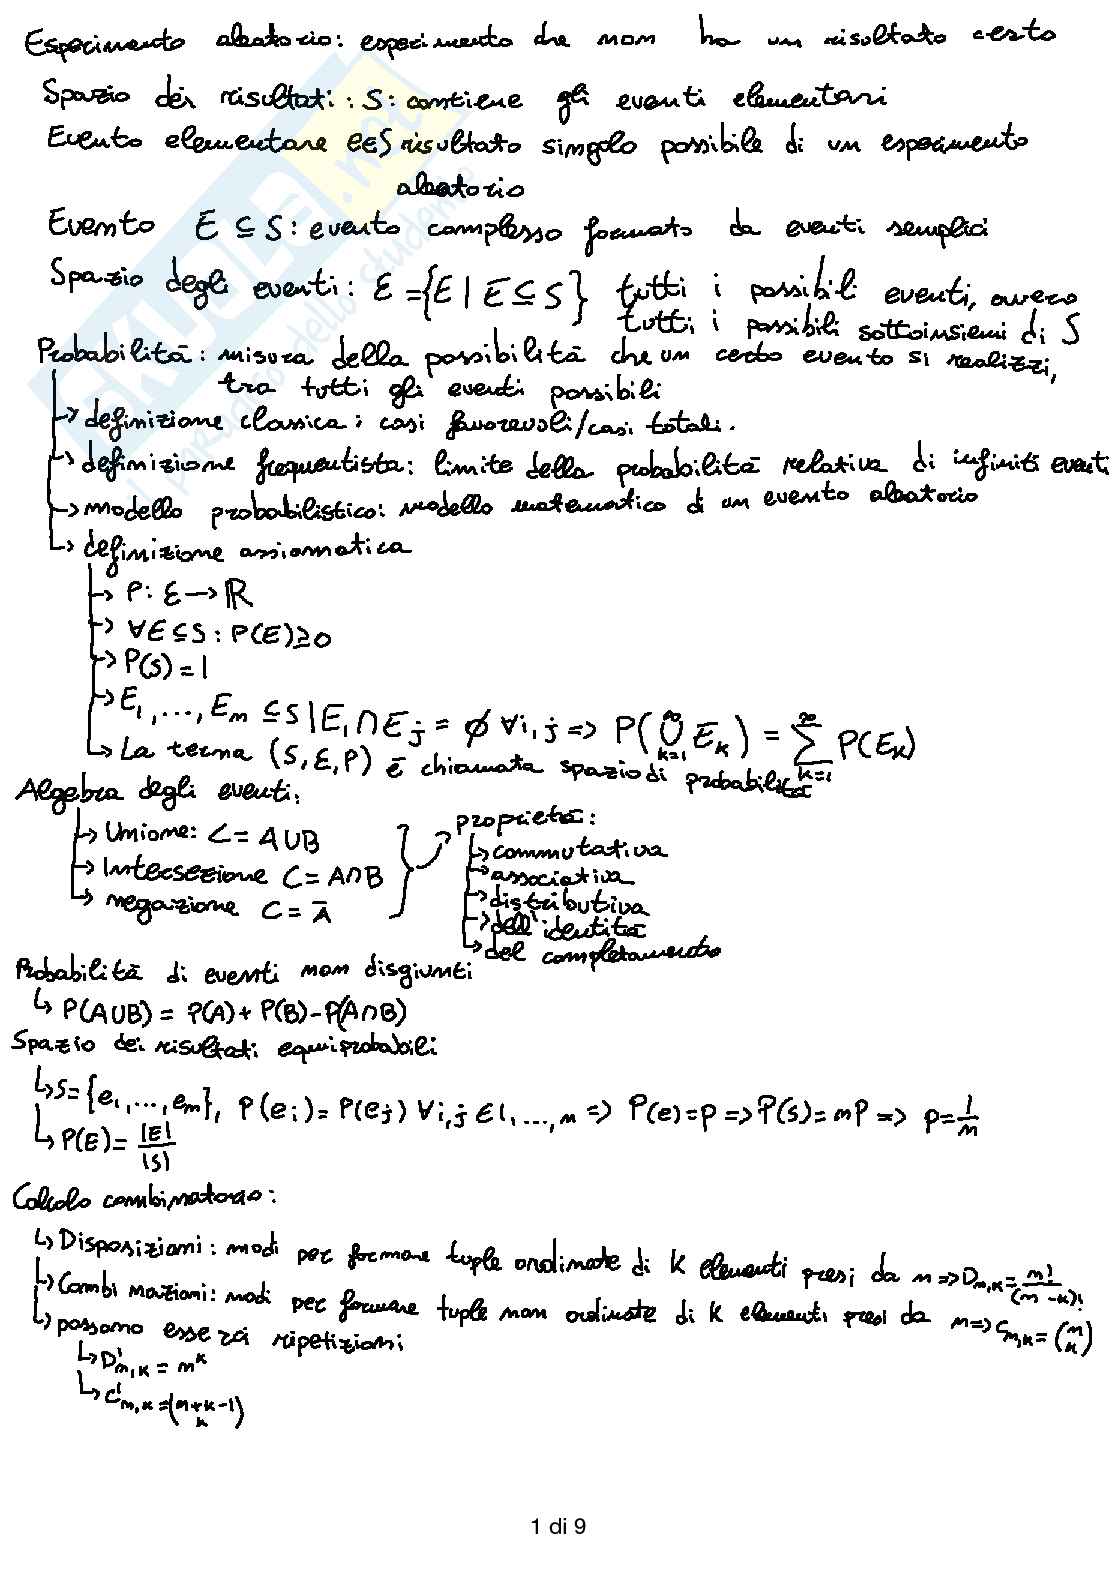 Esperimento aleatorio: esperimento che non ha un risultato certo
Spazio dei risultati: S: contiene gli eventi elementari
Evento elementare e∈S risultato singolo possibile di un esperimento
aleatorio
Evento E ⊆ S: evento complesso formato da eventi semplici
Spazio degli eventi: Ɛ={E | E⊆S} tutti i possibili eventi, ovvero
tutti i possibili sottoinsiemi di S
Probabilità: misura della possibilità che un certo evento si realizzi,
tra tutti gli eventi possibili
↳ definizione classica: casi favorevoli/casi totali.
↳ definizione frequentista: limite della probabilità relativa di infiniti eventi
↳ modello probabilistico: modello matematico di un evento aleatorio
↳ definizione assiomatica
↳ P: Ɛ → ℝ
↳ ∀E⊆S: P(E)≥0
↳ P(S)=1
↳ E₁,...,Eₙ ⊆S | Eᵢ∩Eⱼ = ∅ ∀i,j => P(⋃_{k=1}^∞ Eₖ) = ∑_{k=1}^∞ P(Eₖ)
↳ La terna (S,Ɛ,P) è chiamata spazio di probabilità
Algebra degli eventi:
↳ Unione: C = A∪B
↳ Intersezione C = A∩B
↳ negazione C = Ā
proprietà:
↳ commutativa
↳ associativa
↳ distributiva
↳ dell'identità
↳ del completamento
Probabilità di eventi non disgiunti
↳ P(A∪B) = P(A)+P(B)-P(A∩B)
Spazio dei risultati equiprobabili
↳ S={e₁,...,eₙ}, P(eᵢ)=P(eⱼ) ∀i,j ∈1,...,n => P(e)=p => P(S)=np => p=1/n
↳ P(E)=|E|/|S|
Calcolo combinatorio:
↳ Disposizioni: modi per formare tuple ordinate di k elementi presi da n => Dₙ,ₖ=n!/(n-k)!
↳ Combinazioni: modi per formare tuple non ordinate di k elementi presi da n => Cₙ,ₖ=(n k)
↳ possono esserci ripetizioni
↳ D'ₙ,ₖ = nᵏ
↳ C'ₙ,ₖ=(n+k-1 k)
1 di 9